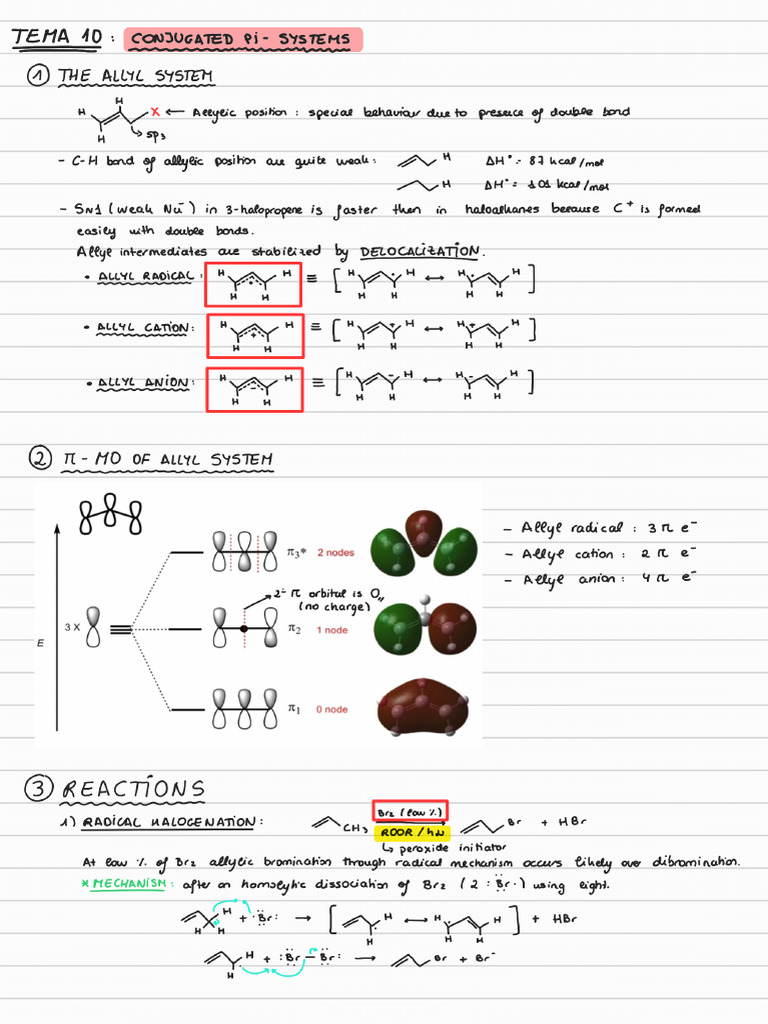 TEMA 10 : CONJUGATED Pi - SYSTEMS
① THE ALLYL SYSTEM
H H H X ← Allyelic position : special behaviour due to presence of double bond
sp3
- C-H bond of allylic position are quite weak: H ΔH° = 87 kcal/mol
H ΔH° = 101 kcal/mol
- SN1 (weak Nu⁻) in 3-halopropene is faster then in haloalkanes because C⁺ is formed
easily with double bonds.
Allyl intermediates are stabilized by DELOCALIZATION.
• ALLYL RADICAL: H H H H ≡ [ H H H H ↔ H H H H ]
• ALLYL CATION: H H + H H ≡ [ H H + H H ↔ H + H H H ]
• ALLYL ANION: H H - H H ≡ [ H H - H H ↔ H - H H H ]
② π - MO OF ALLYL SYSTEM
- Allyl radical : 3 π e⁻
- Allyl cation : 2 π e⁻
- Allyl anion : 4 π e⁻
π3* 2 nodes
2ⁿ π orbital is 0,,
(no charge)
3 X
π2 1 node
E
π1 0 node
③ REACTIONS
1) RADICAL HALOGENATION: CH3 Br2 (low %) Br + HBr
ROOR / hν
↳ peroxide initiator
At low % of Br2 allylic bromination through radical mechanism occurs likely over dibromination.
* MECHANISM: after an homolytic dissociation of Br2 (2 :Br·) using light.
H H H + ·Br: → [ H H ↔ H H H ] + HBr
H H + :Br - Br: → Br + Br⁻